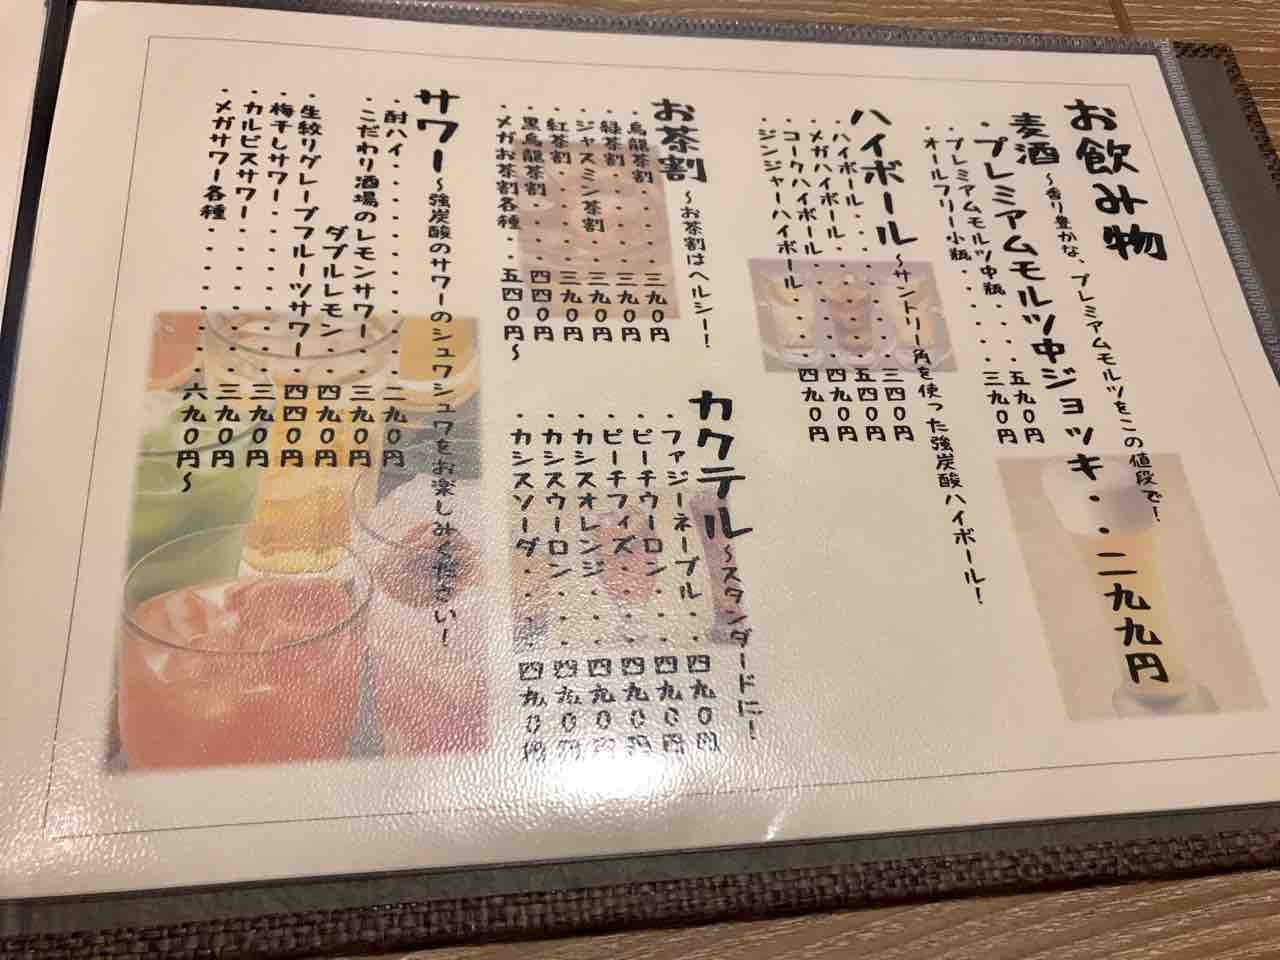 お飲み物
麦酒 ~香り豊かな、プレミアムモルツをこの値段で!
・プレミアムモルツ中ジョッキ・・二九九円
・プレミアムモルツ中瓶・・・・五九〇円
・オールフリー小瓶・・・・・三九〇円
ハイボール ~サントリー角を使った強炭酸ハイボール!
・ハイボール・・・・・三四〇円
・メガハイボール・・・・五四〇円
・コークハイボール・・・四九〇円
・ジンジャーハイボール・・四九〇円
お茶割 ~お茶割はヘルシー!
・烏龍茶割・・・・三九〇円
・緑茶割・・・・・三九〇円
・ジャスミン茶割・・三九〇円
・紅茶割・・・・・三九〇円
・黒烏龍茶割・・・四四〇円
・メガお茶割各種・・五四〇円~
カクテル ~スタンダードに!
・ファジーネーブル・・四九〇円
・ピーチウーロン・・・四九〇円
・ピーチフィズ・・・・四九〇円
・カシスオレンジ・・・四九〇円
・カシスウーロン・・・四九〇円
・カシスソーダ・・・・四九〇円
サワー ~強炭酸のサワーのシュワシュワをお楽しみください!
・酎ハイ・・・・・・・・二九〇円
・こだわり酒場のレモンサワー・三九〇円
ダブルレモン・・四九〇円
・生絞りグレープフルーツサワー・四四〇円
・梅干しサワー・・・・・三九〇円
・カルピスサワー・・・・三九〇円
・メガサワー各種・・・・六九〇円~